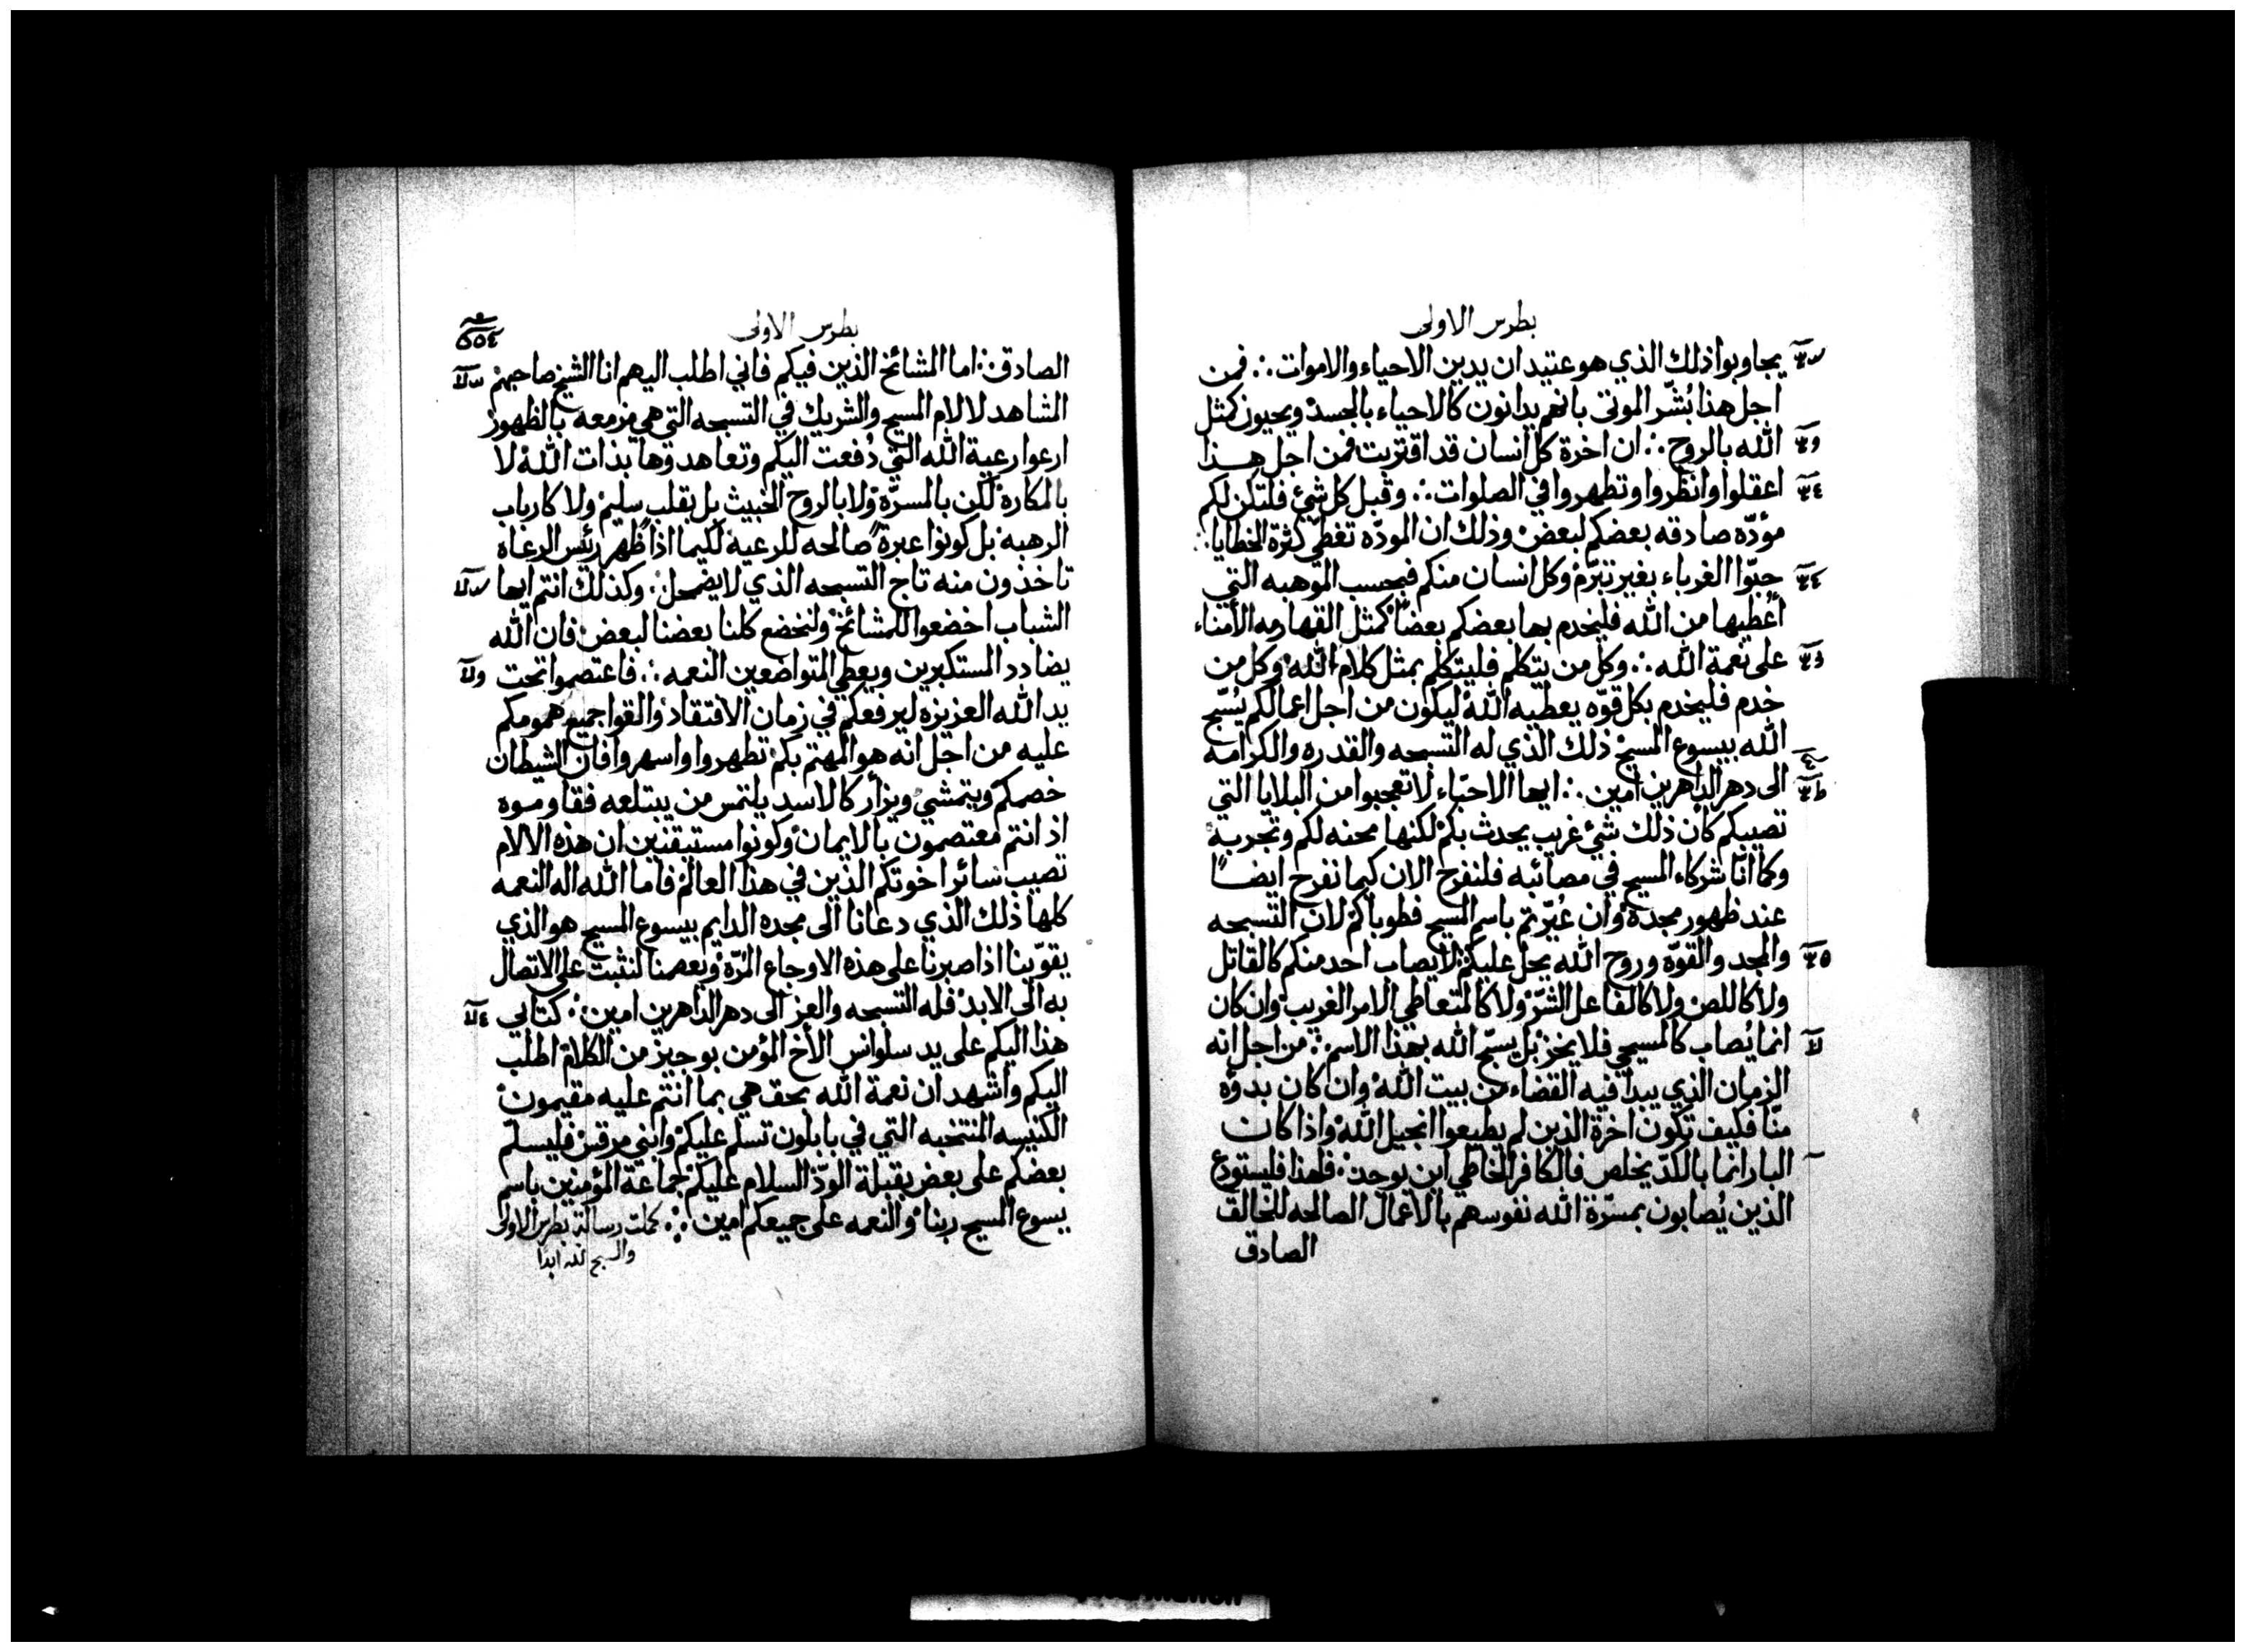 بطرس الاولى
يجاوبوا ذلك الذي هو عتيد ان يدين الاحياء والاموات ∴ فمن
اجل هذا بُشّر الموتى بانهم يدانون كالاحياء بالجسد ويحيون كمثل
الله بالروح ∴ ان اخرة كل انسان قد اقتربت فمن اجل هذا
اعقلوا وانظروا وتطهروا في الصلوات ∴ وقبل كل شئ فلتكن لكم
مؤدّه صادقه بعضكم لبعض وذلك ان المودّه تغطي كثرة الخطايا ∴
حبّوا الغرباء بغير تبرّم وكل انسان منكم فبحسب الموهبه التي
أعُطيها من الله فليخدم بها بعضكم بعضًا كمثل القهارمه الأمناء
على نعمة الله ∴ وكل من يتكلم فليتكلم بمثل كلام الله وكل من
خدم فليخدم بكل قوّه يعطيه الله ليكون من اجل اعمالكم يُسّبح
الله بيسوع المسيح ذلك الذي له التسبحه والقدره والكرامه
الى دهر الداهرين امين ∴ ايها الاحبّاء لا تعجبوا من البلايا التي
تصيبكم كأن ذلك شئ غريب يحدث بكم لكنها محنه لكم وتجربة
وكما انّا شركاء المسيح في مصائبه فلنفرح الان كيما نفرح ايضًا
عند ظهور مجده وان عُيّرتم باسم المسيح فطوباكم لان التسبحه
والمجد والقوّه وروح الله يحل عليكم لا يصاب احد منكم كالقاتل
ولا كاللص ولا كالفاعل الشرّ ولا كالمتعاطي الامر الغريب وان كان
انما يُصاب كالمسيحي فلا يخز بل يسبّح الله بهذا الاسم ∴ من اجل انه
الزمان الذي يبدا فيه القضاء من بيت الله وان كان بدؤه
منّا فكيف تكون اخرة الذين لم يطيعوا انجيل الله واذا كان
البار انما بالكدّ يخلص فالكافر الخاطي اين يوجد فلهذا فليستودع
الذين يُصابون بمسرّة الله نفوسهم بالاعمال الصالحه للخالق
الصادق
بطرس الاولى
٥٥٤
الصادق ∴ اما المشائخ الذين فيكم فاني اطلب اليهم انا الشيخ صاحبهم
الشاهد لالام المسيح والشريك في التسبحه التي هي مزمعه بالظهور
ارعوا رعية الله التي دُفعت اليكم وتعاهدوها بذات الله لا
بالمكاره لكن بالمسرّة ولا بالروح الخبيث بل بقلب سليم ولا كارباب
الرهبه بل كونوا عبرةً صالحه للرعيه لكيما اذا ظهر رئس الرعاه
تاخذون منه تاج التسبحه الذي لا يضمحل ∴ وكذلك انتم ايها
الشباب اخضعوا للمشائخ ولنخضع كلنا بعضنا لبعض فان الله
يضادد المستكبرين ويعطي المتواضعين النعمه ∴ فاعتصموا تحت
يد الله العزيزه ليرفعكم في زمان الافتقاد والقوا جميع همومكم
عليه من اجل انه هو المهتم بكم تطهروا واسهروا فان الشيطان
خصمكم ويتمشي ويزأر كالاسد يلتمس من يبتلعه فقاوموه
اذ انتم معتصمون بالايمان وكونوا مستيقنين ان هذه الالام
تصيب سائر اخوتكم الذين في هذا العالم فاما الله اله النعمه
كلها ذلك الذي دعانا الى مجده الدايم بيسوع المسيح هو الذي
يقوّينا اذا صبرنا على هذه الاوجاع المُرّة ويعصمنا لنثبت على الاتصال
به الى الابد فله التسبحه والعز الى دهر الداهرين امين ∴ كتابي
هذا اليكم على يد سلوانس الأخ المؤمن بوجيز من الكلام اطلب
اليكم واشهد ان نعمة الله بحق هي بما انتم عليه مقيمون
الكنيسه المنتخبه التي في بابلون تسلم عليكم وابني مرقس فليسلم
بعضكم على بعض بقبلة الودّ السلام عليكم جماعة المؤمنين باسم
يسوع المسيح ربنا والنعمه على جميعكم امين ∴ كملت رسالة بطرس الاولى
والسبح لله ابدا